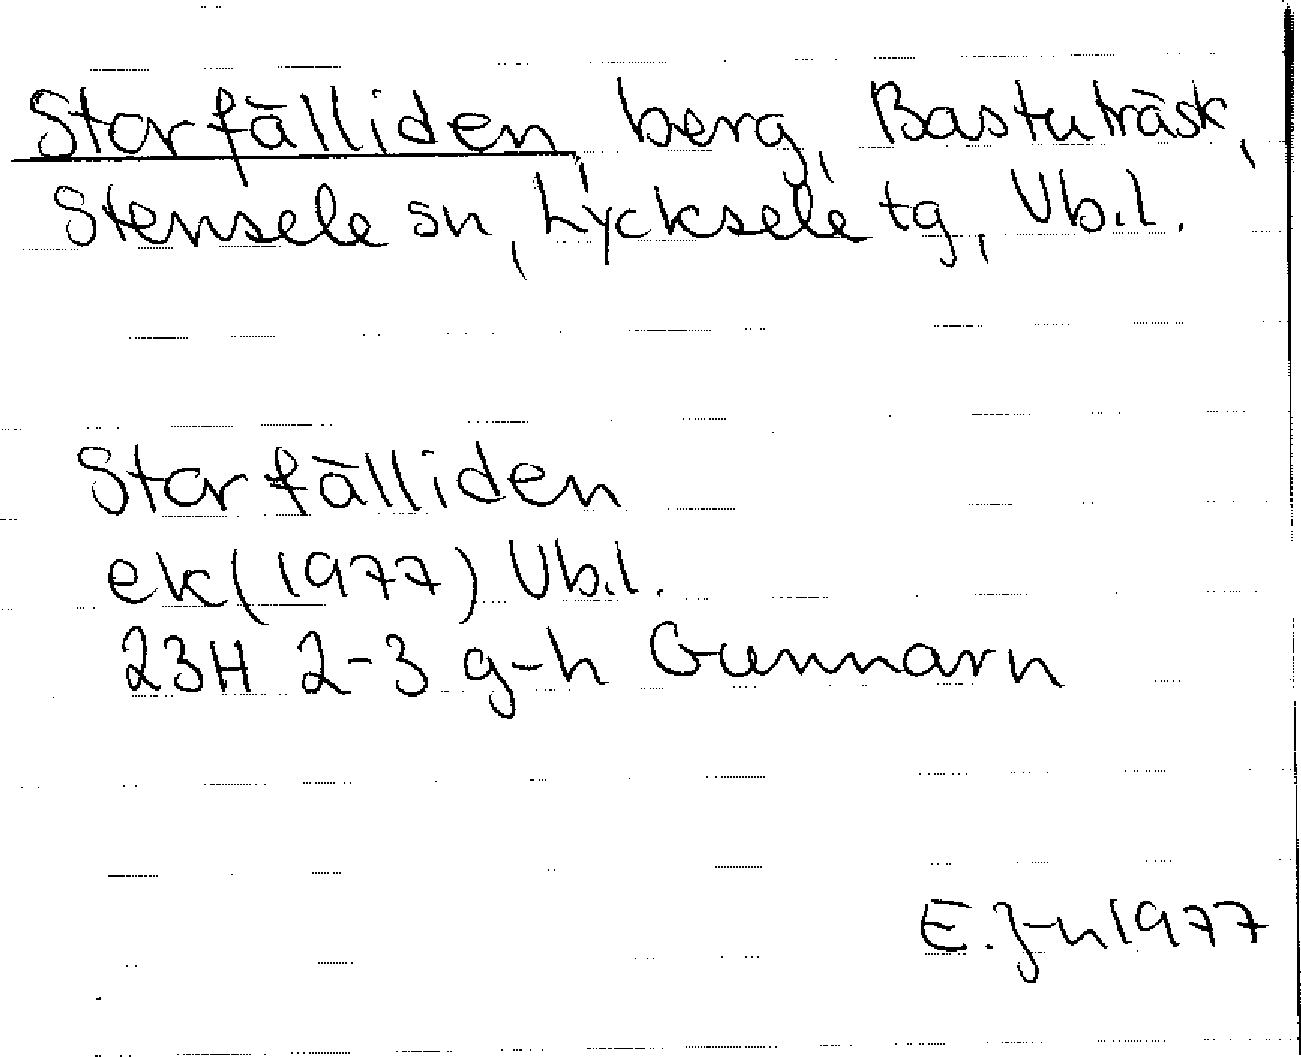 Storfälliden, berg, Bastuträsk,
Stensele sn, Lycksele tg, Vb.l.
Storfälliden
ek (1977) Vb.l.
23H 2-3 g-h Gunnarn
E.J-n 1977